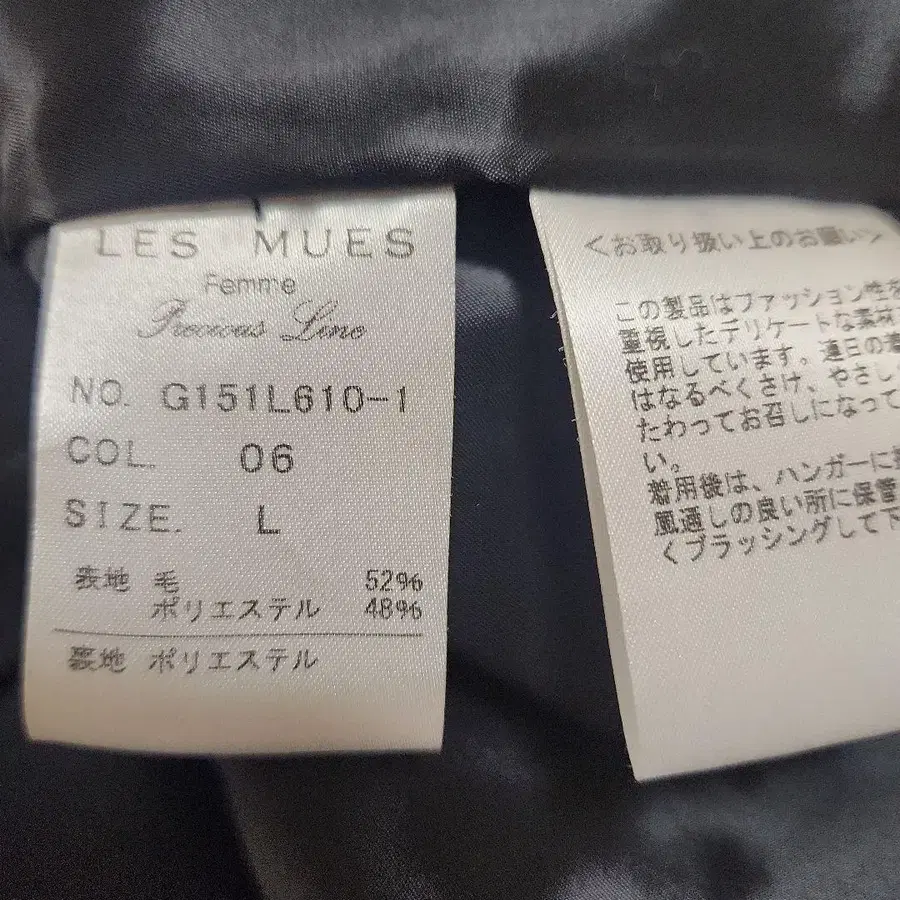 LES MUES
Femme
Precious Line
NO. G151L610-1
COL. 06
SIZE. L
表地 毛 52%
ポリエステル 48%
裏地 ポリエステル
<お取り扱い上のお願い>
この製品はファッション性を
重視したデリケートな素材
使用しています。連日の着
はなるべくさけ、やさし
たわってお召しになって
い。
着用後は、ハンガーに
風通しの良い所に保管
くブラッシングして下